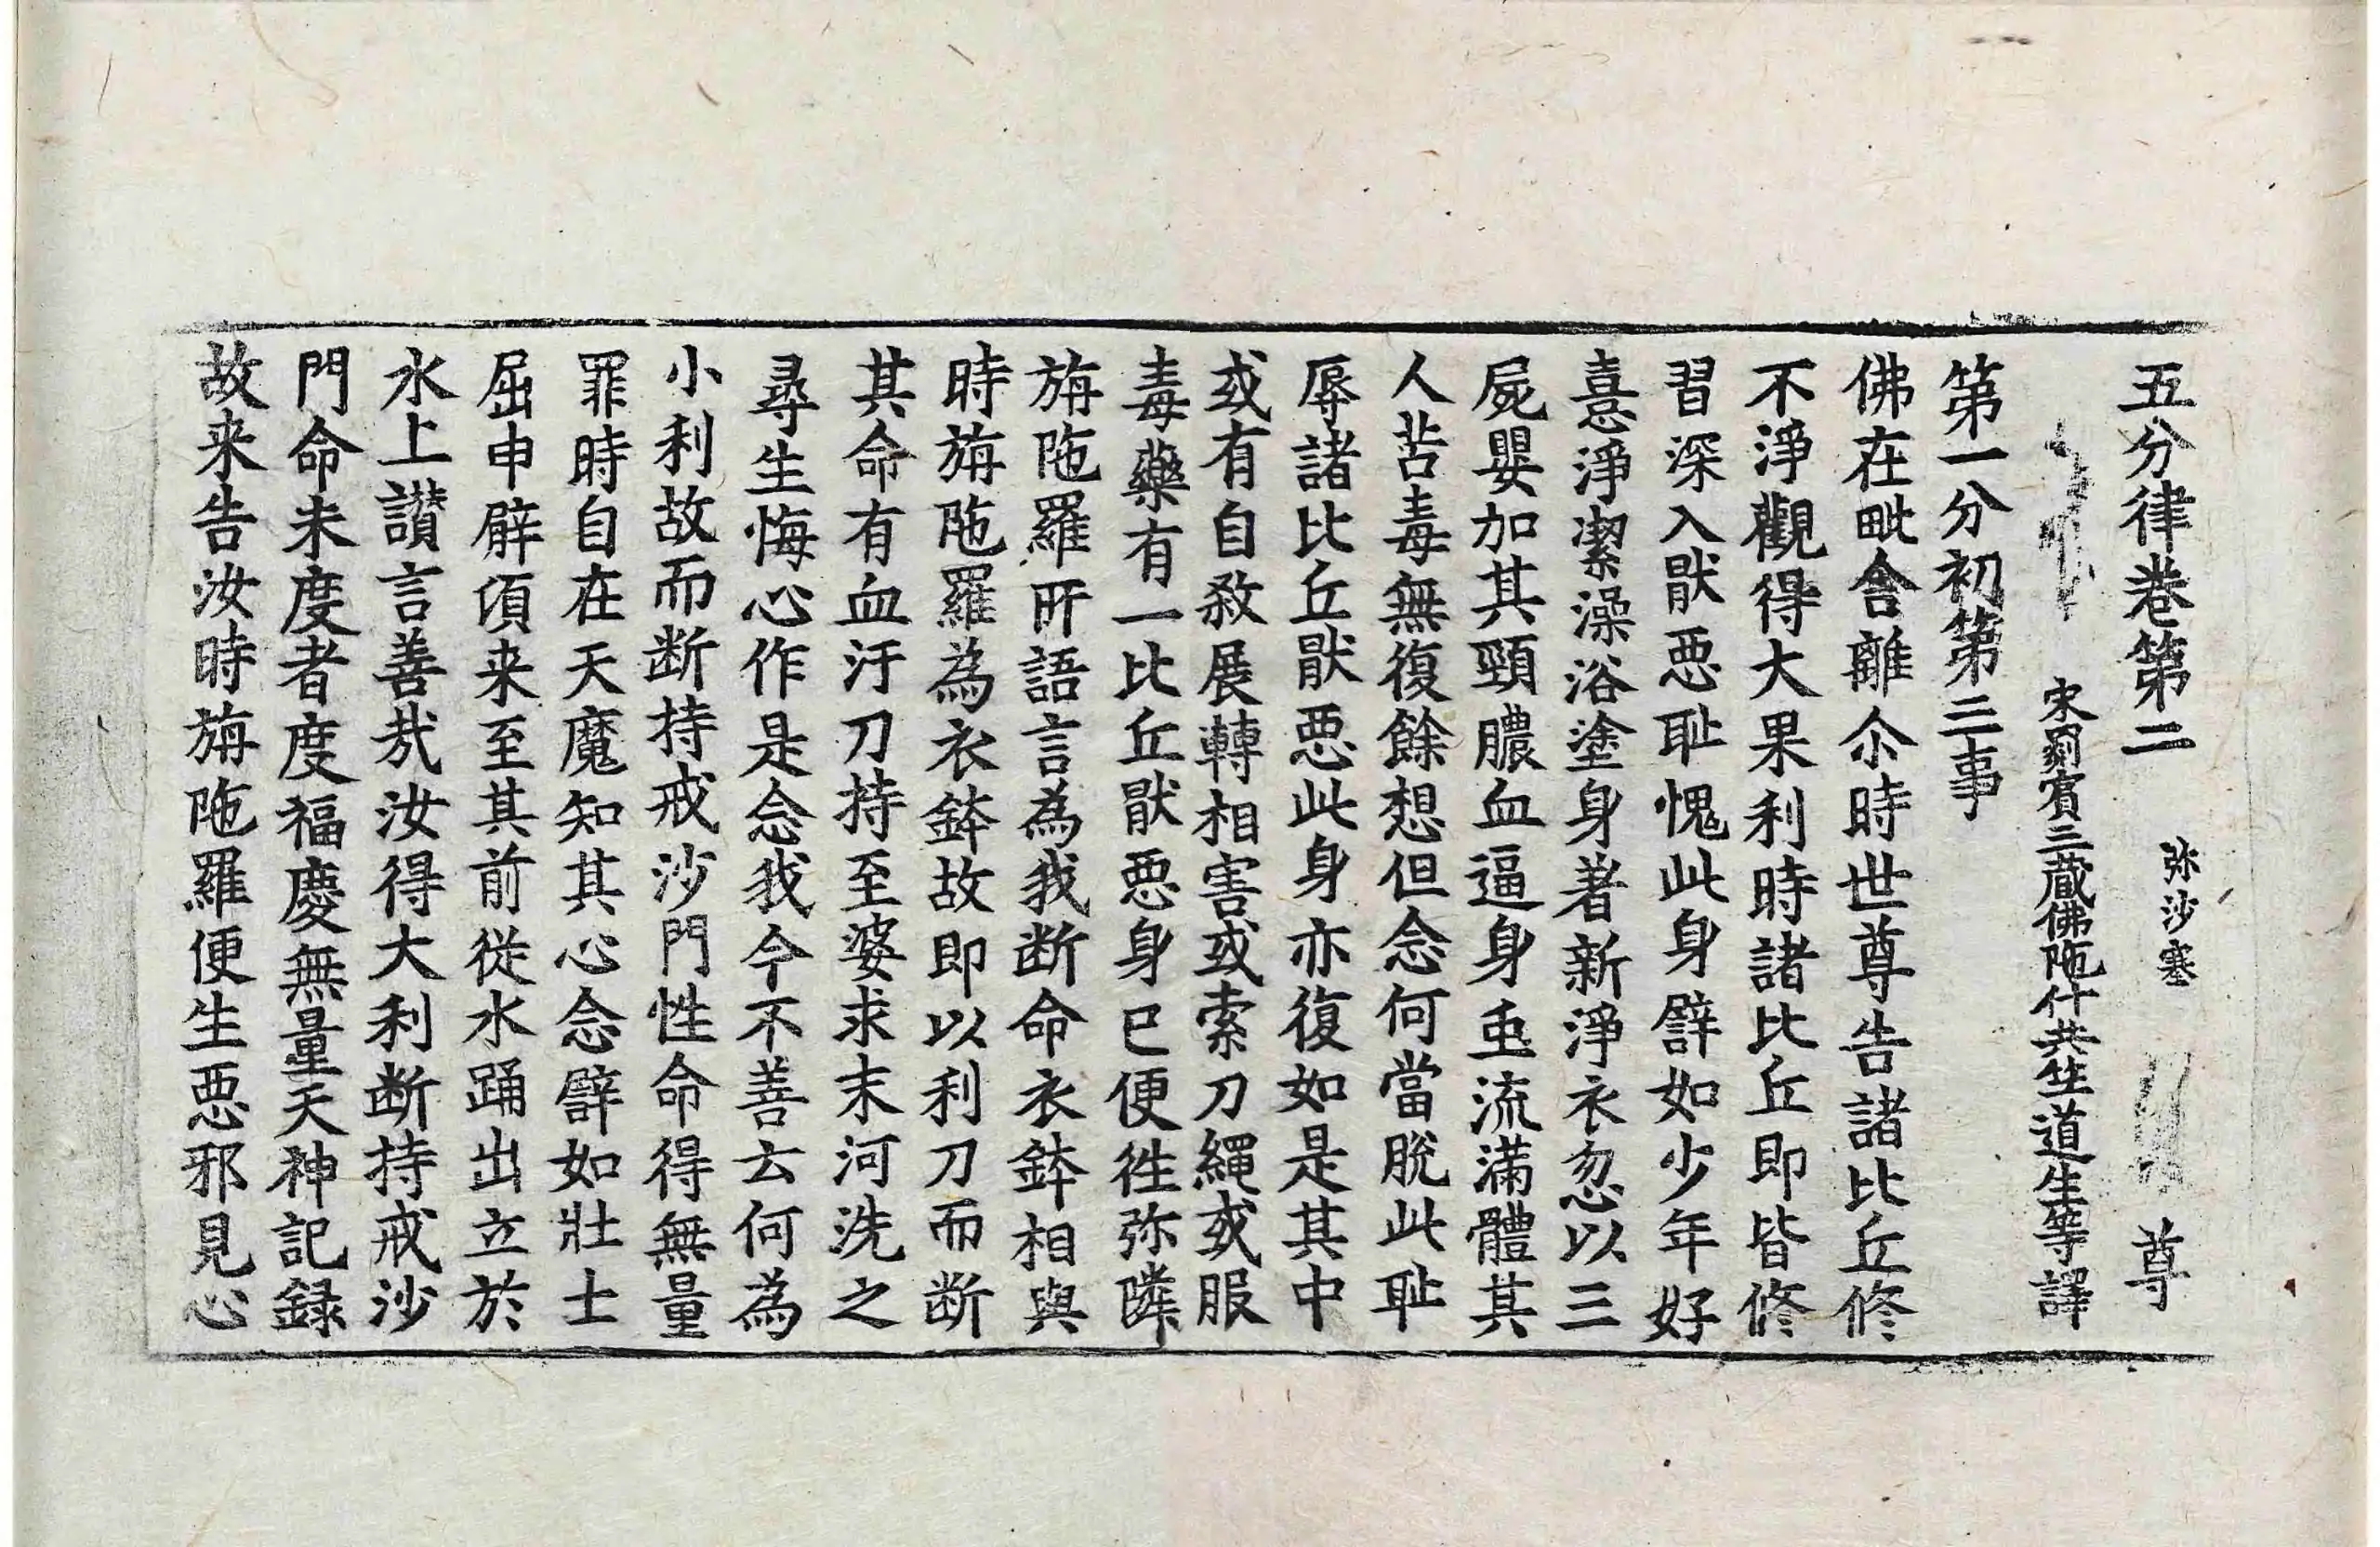 五分律卷第二 弥沙塞 尊
宋罽賓三藏佛陁什共竺道生等譯
第一分初第三事
佛在毗舍離尒時世尊告諸比丘修
不淨觀得大果利時諸比丘即皆修
習深入猒惡耻愧此身譬如少年好
憙淨潔澡浴塗身著新淨衣忽以三
屍嬰加其頸膿血逼身䖝流滿體其
人苦毒無復餘想但念何當脫此耻
辱諸比丘猒惡此身亦復如是其中
或有自殺展轉相害或索刀繩或服
毒藥有一比丘猒惡身已便徃弥隣
旃陁羅所語言為我断命衣鉢相與
時旃陁羅為衣鉢故即以利刀而断
其命有血汙刀持至婆求末河洗之
尋生悔心作是念我今不善云何為
小利故而断持戒沙門性命得無量
罪時自在天魔知其心念譬如壯士
屈申臂湏来至其前從水踊出立於
水上讚言善㢤汝得大利断持戒沙
門命未度者度福慶無量天神記録
故来告汝時旃陁羅便生惡邪見心